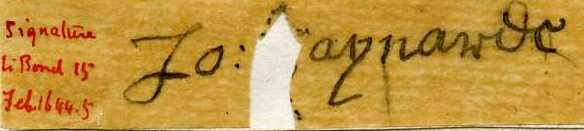 Signature
to Bond 15
Feb. 1644.5
Jo: aynarde